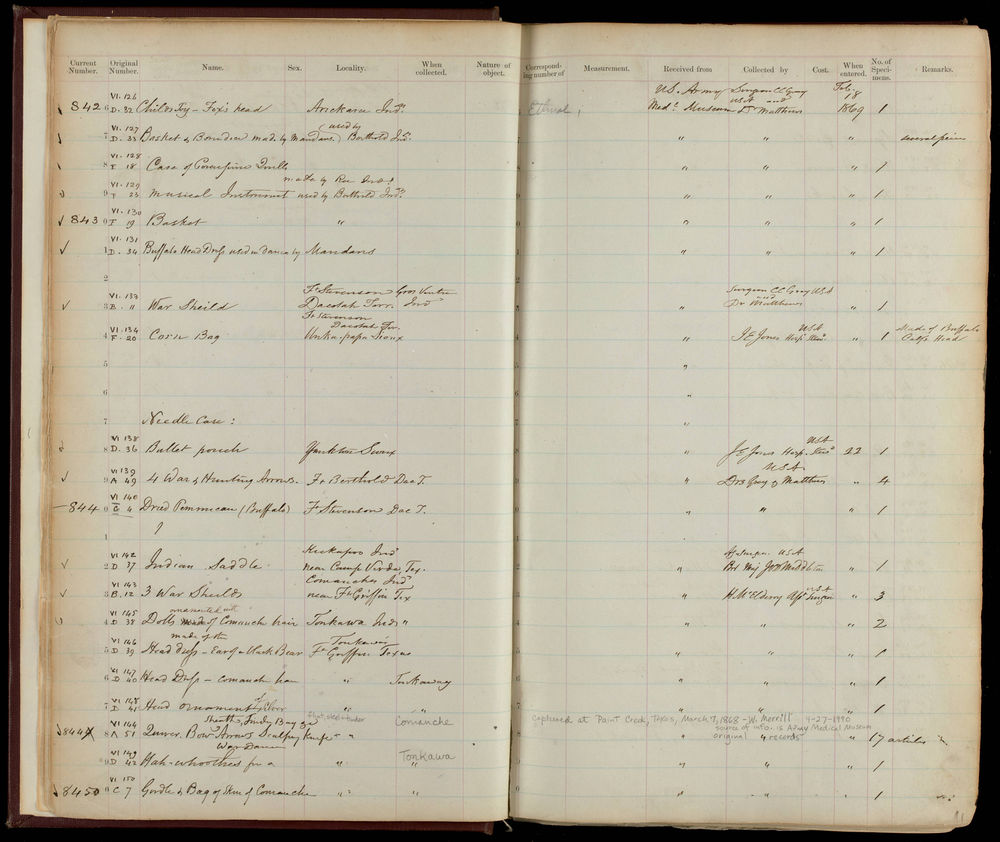 Current Number. Original Number. Name. Sex. Locality. When collected. Nature of object. Corresponding number of Measurement. Received from Collected by Cost. When entered. No. of Specimens. Remarks.
VI. 126 U.S. Army Surgeon CC Gray Feb. 8
842 6 D. 32 Childs Toy - Fox's head Arickaree Inds Ethnol; Med. Museum USA and Dr Matthews 1869 1
VI. 127 used by
7 D. 33 Basket made by Mandans Berthold Ind. 7 " " " several pieces
VI. 128
8 F 18 Case of Porcupine Quills 8 " " " 1
VI. 129 made by Ree Inds
9 F 23 Musical Instrument used by Berthold Inds 9 " " " 1
VI. 130
843 0 F 19 Basket " 0 " " " 1
VI. 131
1 D. 34 Buffalo Head Dress used in dance by Mandans 1 " " " 1
2
VI. 133 Ft Stevenson Gros Ventre Surgeon CC Gray USA
3 B. 11 War Sheild Dacotah Terr. Ind 3 " and Dr Matthews " 1
VI. 134 Ft Stevenson Dacotah Ter. USA Made of Buffalo
4 F. 20 Corn Bag Unka-papa Sioux 4 " J E Jones Hosp. Stew. " 1 Calfs Head
5 "
6 "
7 Needle Case: "
VI 138 USA
8 D. 36 Bullet pouch Yankton Sioux 8 " J E Jones Hosp. Stew. 22 1
VI 139 USA
9 A 49 4 War & Hunting Arrows. Ft Berthold Dac T. 9 " Drs Gray & Matthews " 4
VI 140
844 0 C 4 Dried Pemmican (Buffalo) Ft Stevenson Dac T. 0 " " " 1
1
VI 142 Kickapoo Inds USA
2 D 37 Indian Saddle near Camp Verde, Tex. 2 " Bvt Maj " 1
VI 143 Comanches Inds USA
3 B. 12 3 War Sheilds near Ft Griffin Tex 3 " H McElderry Asst Surgeon " 3
VI 145 ornamented with
4 D 38 Dolls made of Comanche hair Tonkawa Inds " 4 " " " 2
VI 146 made of the Tonkawas
5 D. 39 Head dress - Ear of a Black Bear Ft Griffin Texas 5 " " " 1
VI 147
6 D 40 Head Dress - Comanche hair " Tonkaway 6 " " " 1
VI 148 of Silver
7 D 41 Head ornament " " 7 " " " 1
VI 144 Sheath, flint, steel + tinder Comanche Captured at Paint Creek, Texas, March 7, 1868 - W. Merrill 4-27-1990
source of info. is Army Medical Museum
844 8 A 51 Quiver, Bow Arrows Scalping Knife " " " original " records " 17 articles
VI 149 War Dance Tonkawa
9 D 42 for a " " 9 " " " 1
VI 150
8450 0 C 7 Girdle & Bag of Skin of Comanche " " 0 " " " 1